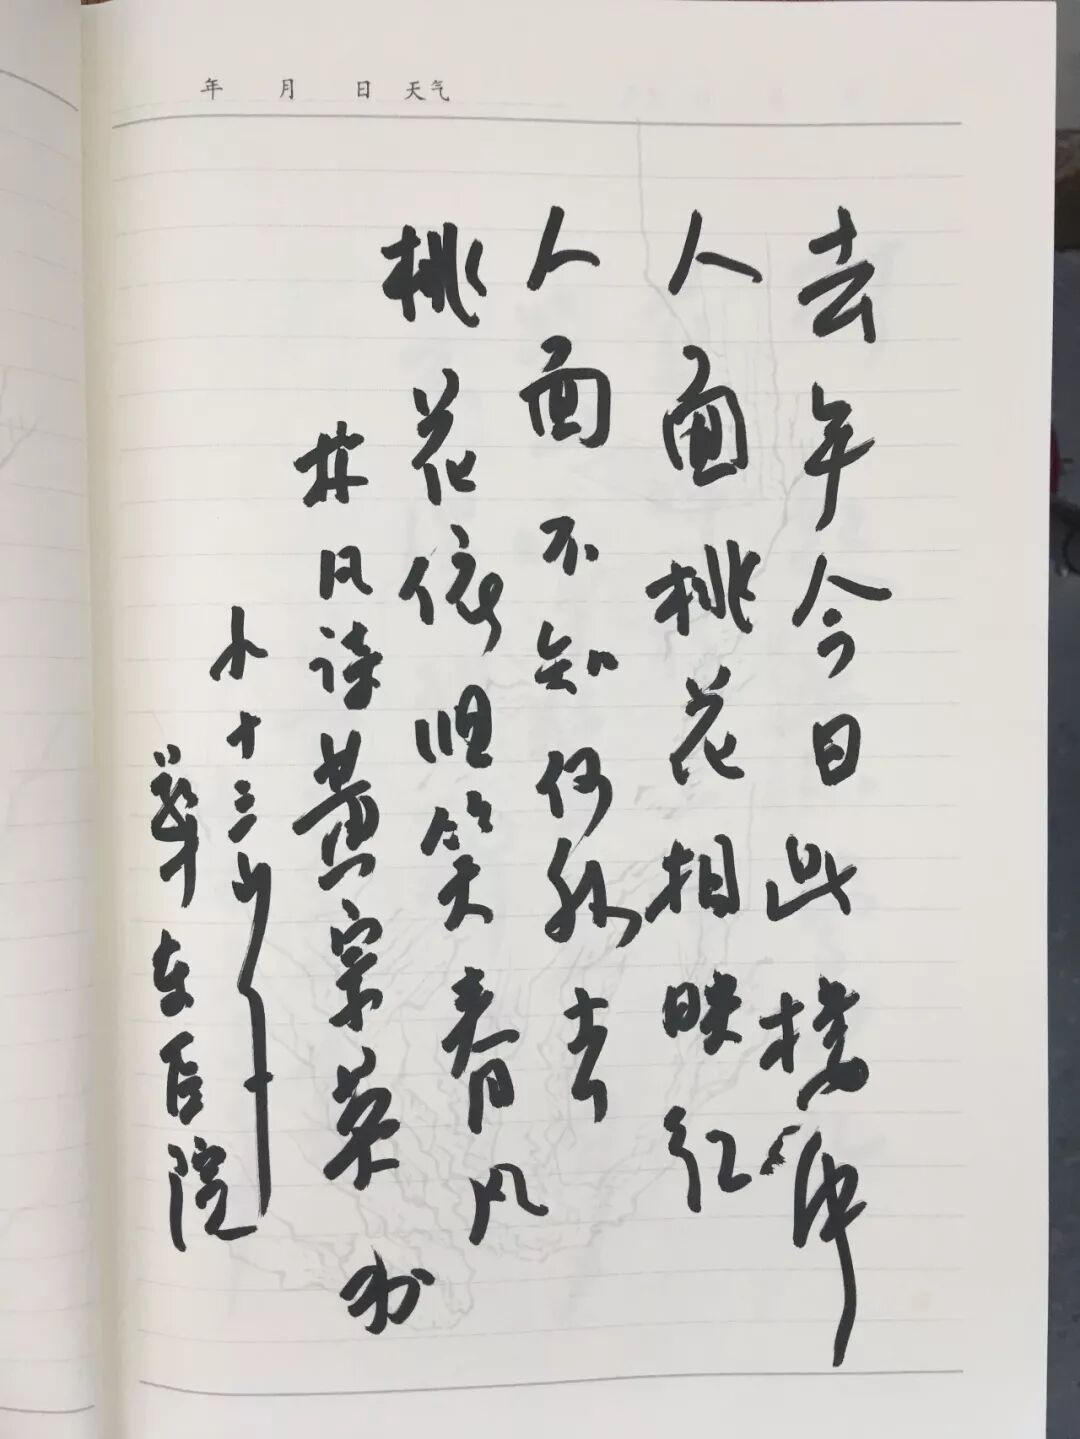 年 月 日 天气
去年今日此楼中
人面桃花相映红
人面不知何処去
桃花依旧笑春风
林风诗黄宗英书
小十三
华东医院